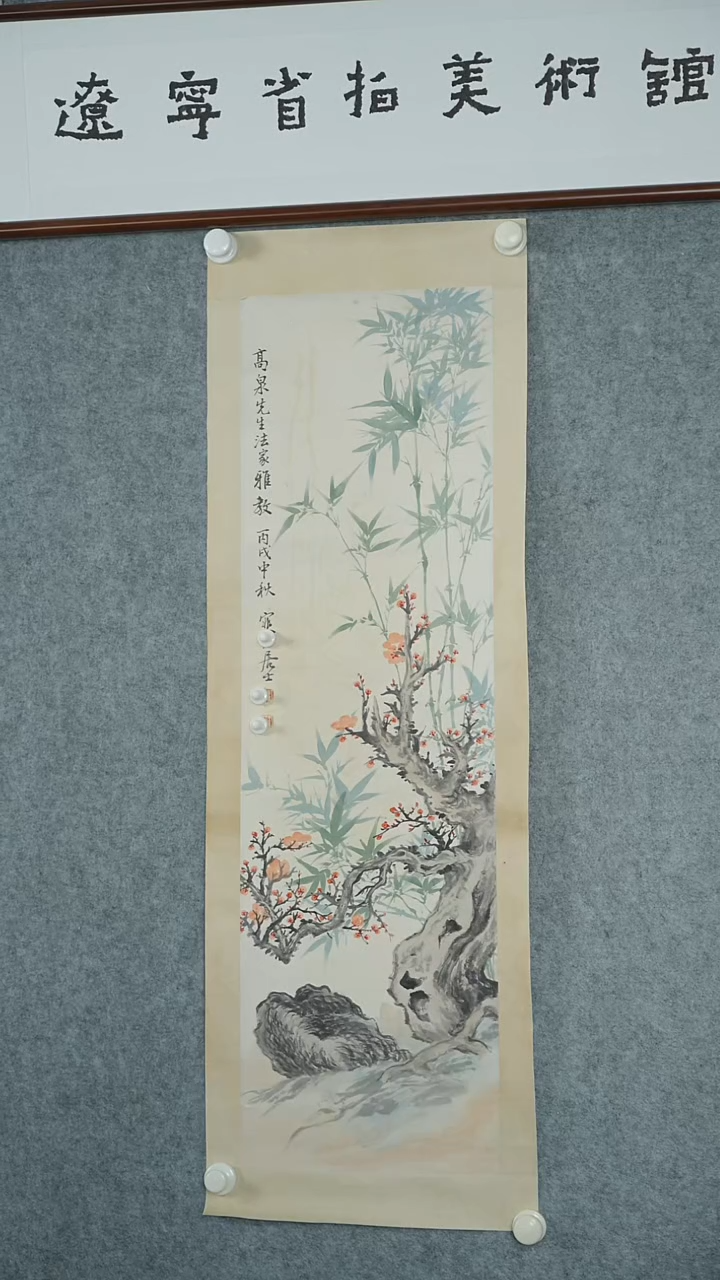 遼寧省拍美術館
高泉先生法家雅教 丙戌中秋 居士